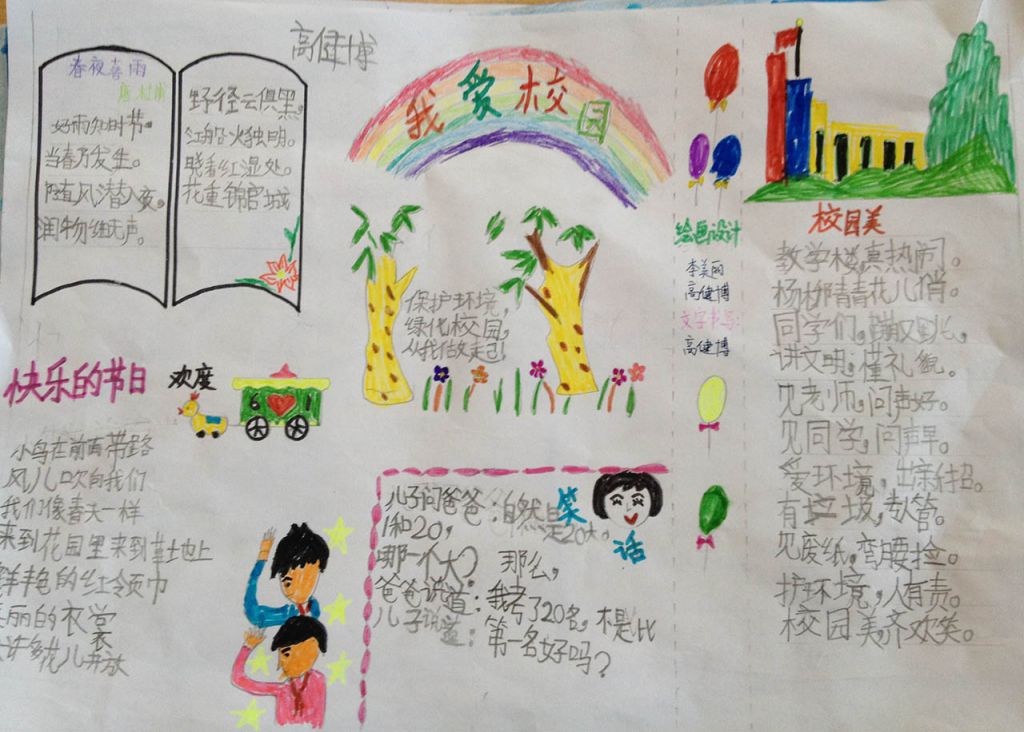 高健博
春夜喜雨
唐 杜甫
好雨知时节。
当春乃发生。
随风潜入夜。
润物细无声。
野径云俱黑。
江船火独明。
晓看红湿处。
花重锦官城
我爱校园
保护环境,
绿化校园,
从我做起!
绘画设计
李美丽
高健博
文字书写:
高健博
校园美
教学楼,真热闹。
杨柳青青花儿俏。
同学们,
讲文明,懂礼貌。
见老师,问声好。
见同学,问声早。
爱环境,出亲招。
有垃圾,敢管。
见废纸,弯腰捡。
护环境,人有责。
校园美,齐欢笑。
快乐的节日
欢度
6 1
小鸟在前面带路
风儿吹向我们
我们像春天一样
来到花园里来到草地上
鲜艳的红领巾
美丽的衣裳
许多花儿开放
笑话
儿子问爸爸:自然是20大。
1和20,
哪一个大? 那么,
爸爸说道:我考了20名,不是比
儿子说道:第一名好吗?